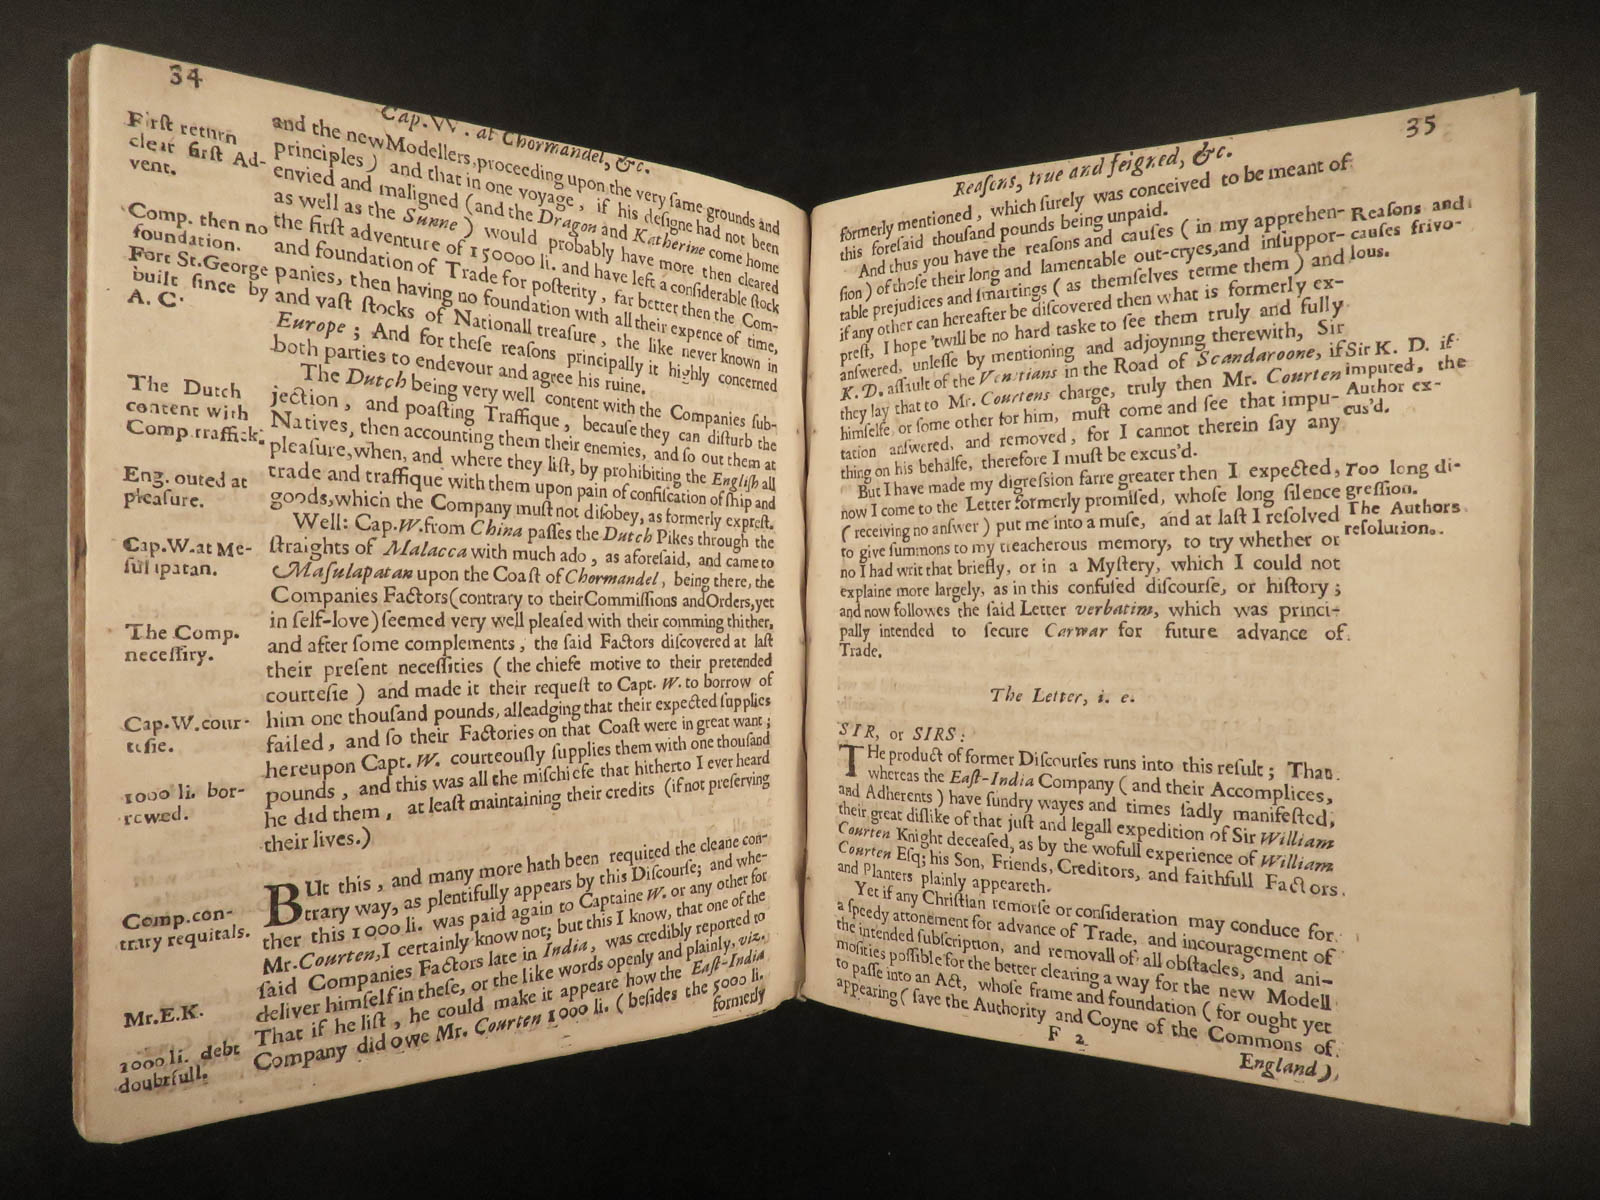 34
Cap. W. at Chormandel, &c.
First return
clear first Ad-
vent.
Comp. then no
foundation.
Fort St. George
built since by
A. C.
The Dutch
content with
Comp. traffick.
Eng. outed at
pleasure.
Cap. W. at Me-
sulipatan.
The Comp.
necessity.
Cap. W. cour-
tesie.
1000 li. bor-
rowed.
Comp. con-
trary requitals.
Mr. E. K.
1000 li. debt
doubtfull.
and the new Modellers, proceeding upon the very same grounds and
principles) and that in one voyage, if his designe had not been
envied and maligned (and the Dragon and Katherine come home
as well as the Sunne) would probably have more then cleared
the first adventure of 150000 li. and have left a considerable stock
and foundation of Trade for posterity, far better then the Com-
panies, then having no foundation with all their expence of time,
and vast stocks of Nationall treasure, the like never known in
Europe; And for these reasons principally it highly concerned
both parties to endevour and agree his ruine.
The Dutch being very well content with the Companies sub-
jection, and poasting Traffique, because they can disturb the
Natives, then accounting them their enemies, and so out them at
pleasure, when, and where they list, by prohibiting the English all
trade and traffique with them upon pain of confiscation of ship and
goods, which the Company must not disobey, as formerly exprest.
Well: Cap. W. from China passes the Dutch Pikes through the
straights of Malacca with much ado, as aforesaid, and came to
Masulapatan upon the Coast of Chormandel, being there, the
Companies Factors (contrary to their Commissions and Orders, yet
in self-love) seemed very well pleased with their comming thither,
and after some complements, the said Factors discovered at last
their present necessities (the chiefe motive to their pretended
courtesie) and made it their request to Capt. W. to borrow of
him one thousand pounds, alleadging that their expected supplies
failed, and so their Factories on that Coast were in great want;
hereupon Capt. W. courteously supplies them with one thousand
pounds, and this was all the mischiefe that hitherto I ever heard
he did them, at least maintaining their credits (if not preserving
their lives.)
BUt this, and many more hath been requited the cleane con-
trary way, as plentifully appears by this Discourse; and whe-
ther this 1000 li. was paid again to Captaine W. or any other for
Mr. Courten, I certainly know not; but this I know, that one of the
said Companies Factors late in India, was credibly reported to
deliver himself in these, or the like words openly and plainly, viz.
That if he list, he could make it appeare how the East-India
Company did owe Mr. Courten 1000 li. (besides the 5000 li.
formerly
35
Reasons, true and feigned, &c.
formerly mentioned, which surely was conceived to be meant of
this foresaid thousand pounds being unpaid.
And thus you have the reasons and causes (in my apprehen-
sion) of those their long and lamentable out-cryes, and insuppor-
table prejudices and smartings (as themselves terme them) and
if any other can hereafter be discovered then what is formerly ex-
prest, I hope 'twill be no hard taske to see them truly and fully
answered, unlesse by mentioning and adjoyning therewith, Sir
K. D. assault of the Venetians in the Road of Scandaroone, if
they lay that to Mr. Courtens charge, truly then Mr. Courten
himselfe or some other for him, must come and see that impu-
tation answered, and removed, for I cannot therein say any
thing on his behalfe, therefore I must be excus'd.
But I have made my digression farre greater then I expected,
now I come to the Letter formerly promised, whose long silence
(receiving no answer) put me into a muse, and at last I resolved
to give summons to my treacherous memory, to try whether or
no I had writ that briefly, or in a Mystery, which I could not
explaine more largely, as in this confused discourse, or history;
and now followes the said Letter verbatim, which was princi-
pally intended to secure Carwar for future advance of
Trade.
Reasons and
causes frivo-
lous.
Sir K. D. if
imputed, the
Author ex-
cus'd.
Too long di-
gression.
The Authors
resolution.
The Letter, i. e.
SIR, or SIRS:
THe product of former Discourses runs into this result; That
whereas the East-India Company (and their Accomplices,
and Adherents) have sundry wayes and times sadly manifested,
their great dislike of that just and legall expedition of Sir William
Courten Knight deceased, as by the wofull experience of William
Courten Esq; his Son, Friends, Creditors, and faithfull Factors
and Planters plainly appeareth.
Yet if any Christian remorse or consideration may conduce for
a speedy attonement for advance of Trade, and incouragement of
the intended subscription, and removall of all obstacles, and ani-
mosities possible for the better clearing a way for the new Modell
to passe into an Act, whose frame and foundation (for ought yet
appearing (save the Authority and Coyne of the Commons of
F 2
England),